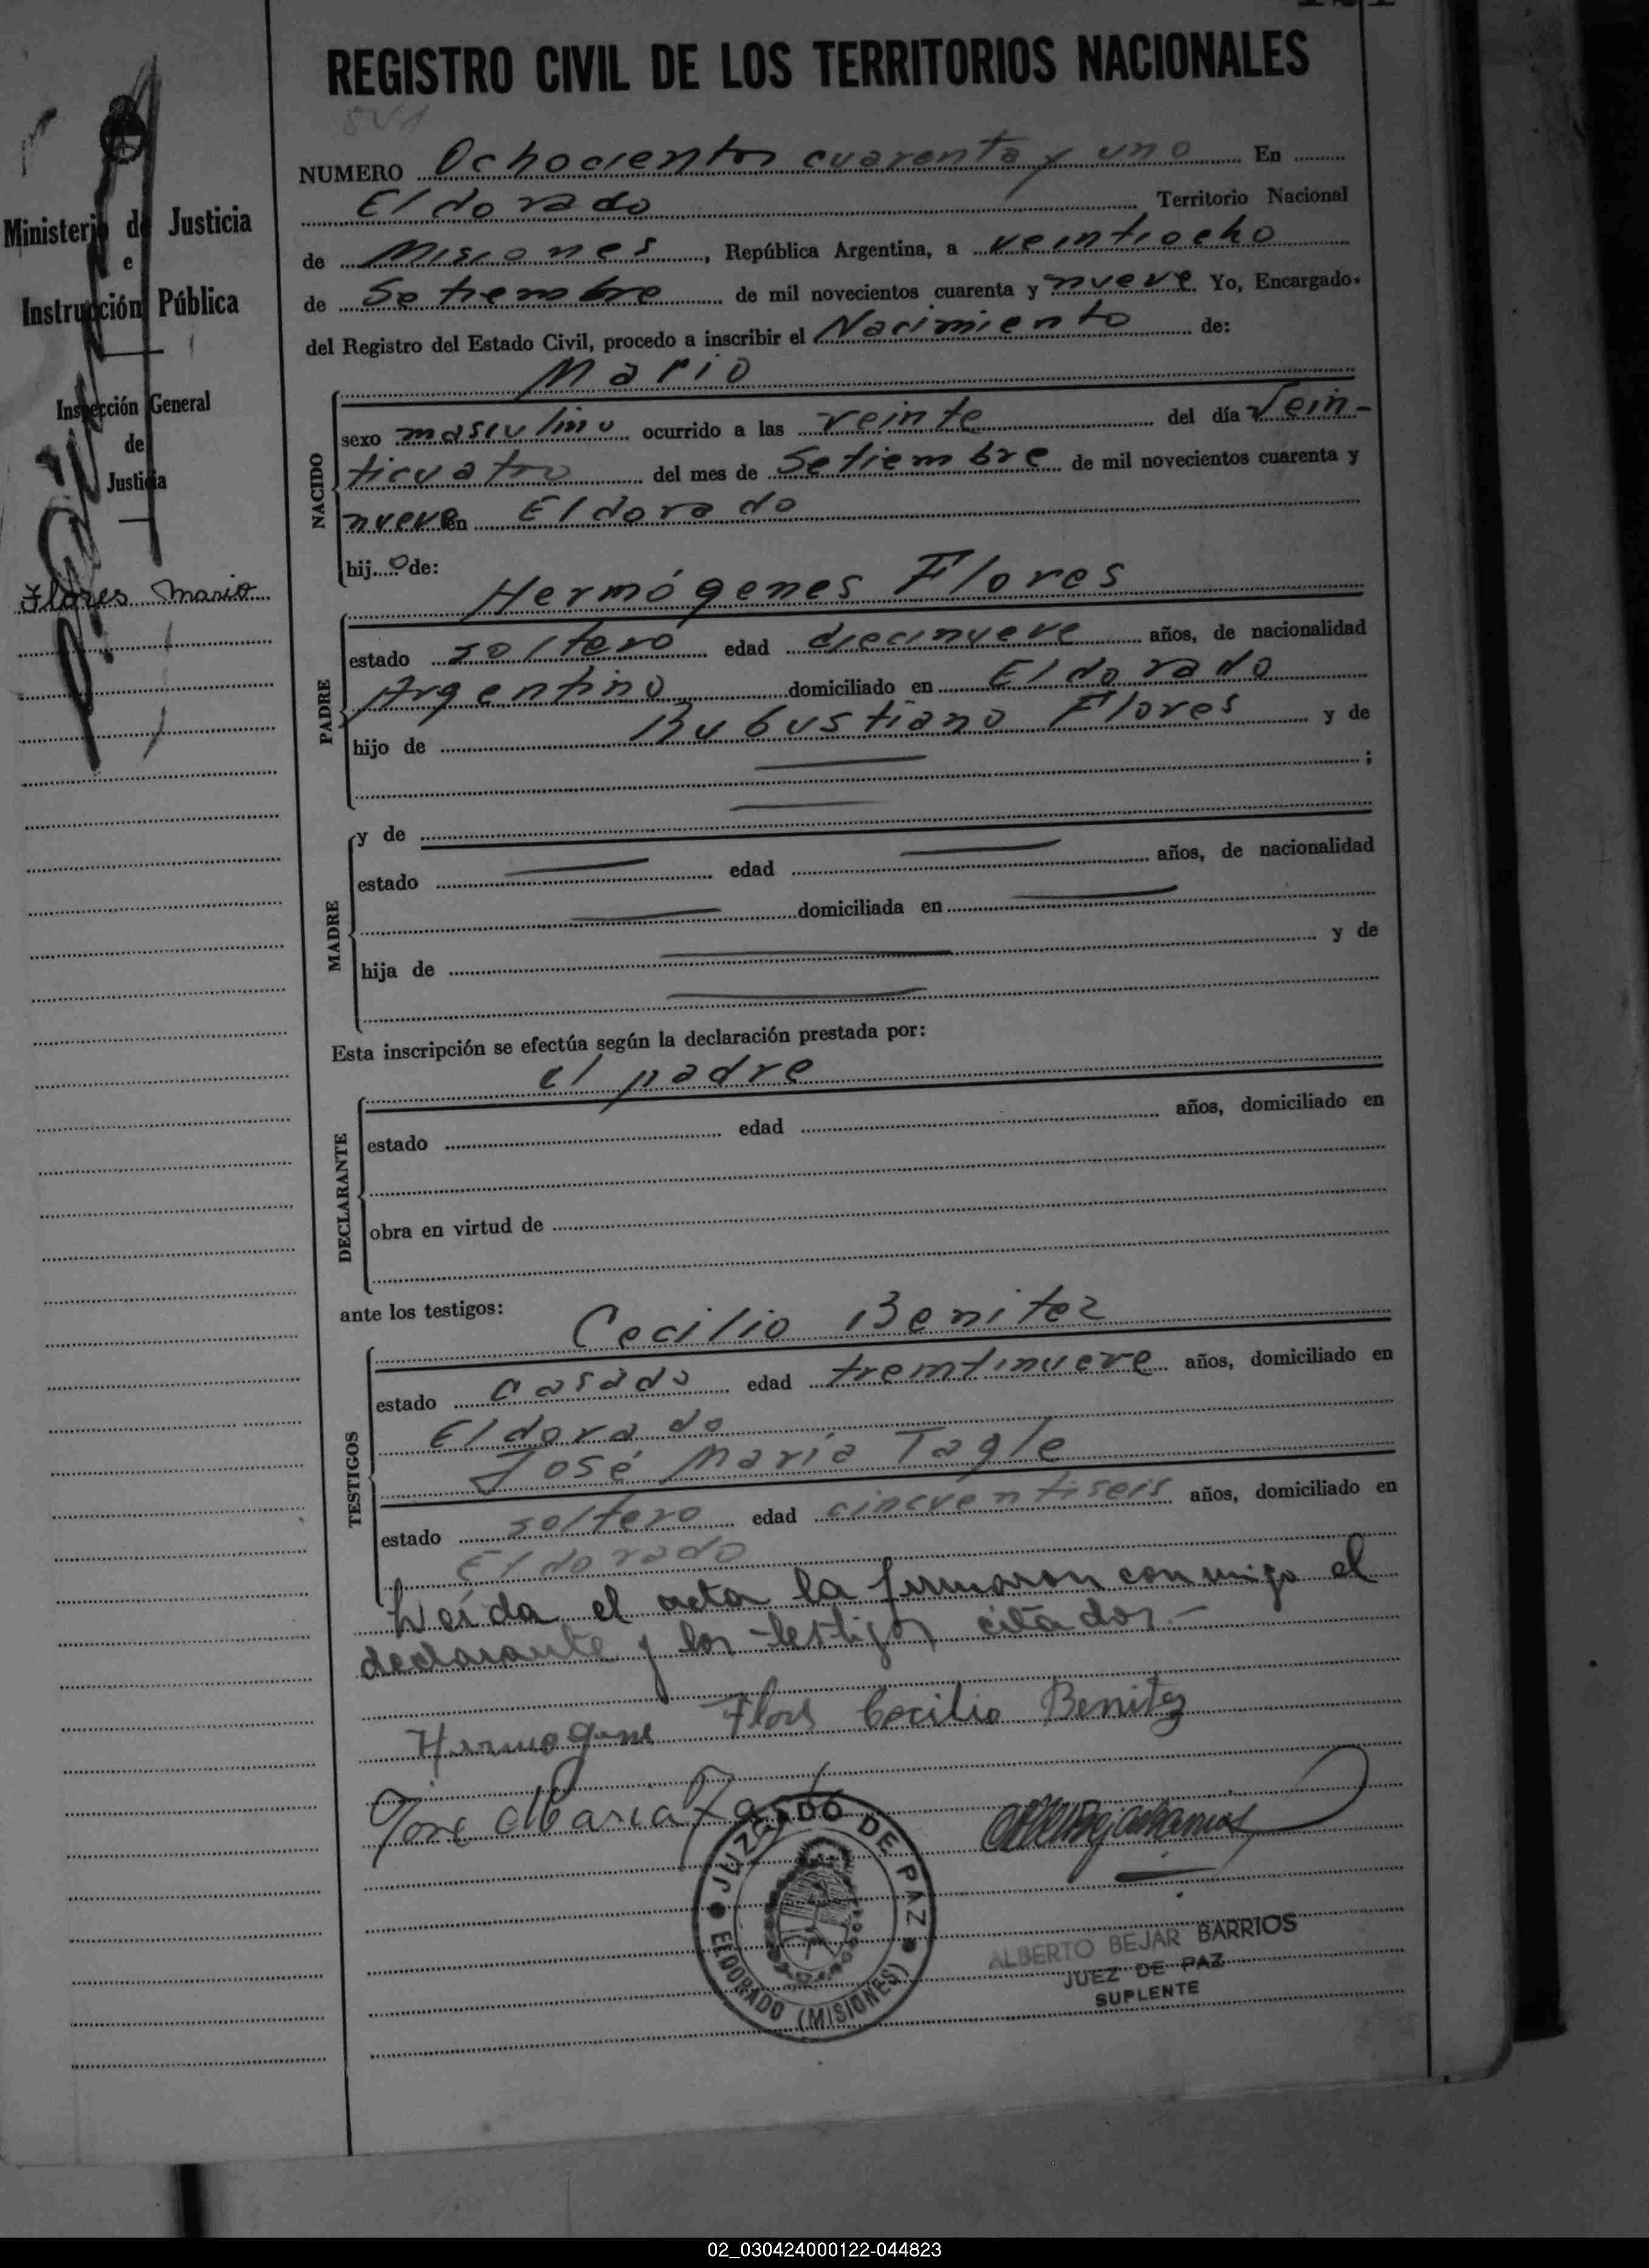 REGISTRO CIVIL DE LOS TERRITORIOS NACIONALES
841
NUMERO Ochocientos cuarenta y uno En
Eldorado Territorio Nacional
de Misiones, República Argentina, a veintiocho
de Setiembre de mil novecientos cuarenta y nueve Yo, Encargado
del Registro del Estado Civil, procedo a inscribir el Nacimiento de:
Mario
NACIDO
sexo masculino ocurrido a las veinte del día Vein-
ticuatro del mes de Setiembre de mil novecientos cuarenta y
nueve en Eldorado
hijo de:
Hermógenes Flores
PADRE
estado soltero edad diecinueve años, de nacionalidad
Argentino domiciliado en Eldorado
hijo de Flores y de
;
MADRE
y de
estado edad años, de nacionalidad
domiciliada en
hija de y de
Esta inscripción se efectúa según la declaración prestada por:
el padre
DECLARANTE
estado edad años, domiciliado en
obra en virtud de
ante los testigos:
Cecilio Benitez
TESTIGOS
estado casado edad treintinueve años, domiciliado en
Eldorado
José María Tagle
estado soltero edad cincuentiseis años, domiciliado en
Eldorado
Leída el acta la firmaron conmigo el
declarante y los testigos citados.-
Hermogene Flores Cecilio Benitez
José Maria Tagle
JUZGADO DE PAZ
ELDORADO (MISIONES)
ALBERTO BEJAR BARRIOS
JUEZ DE PAZ
SUPLENTE
Ministerio de Justicia
e
Instrucción Pública
Inspección General
de
Justicia
Flores Mario
02_030424000122-044823